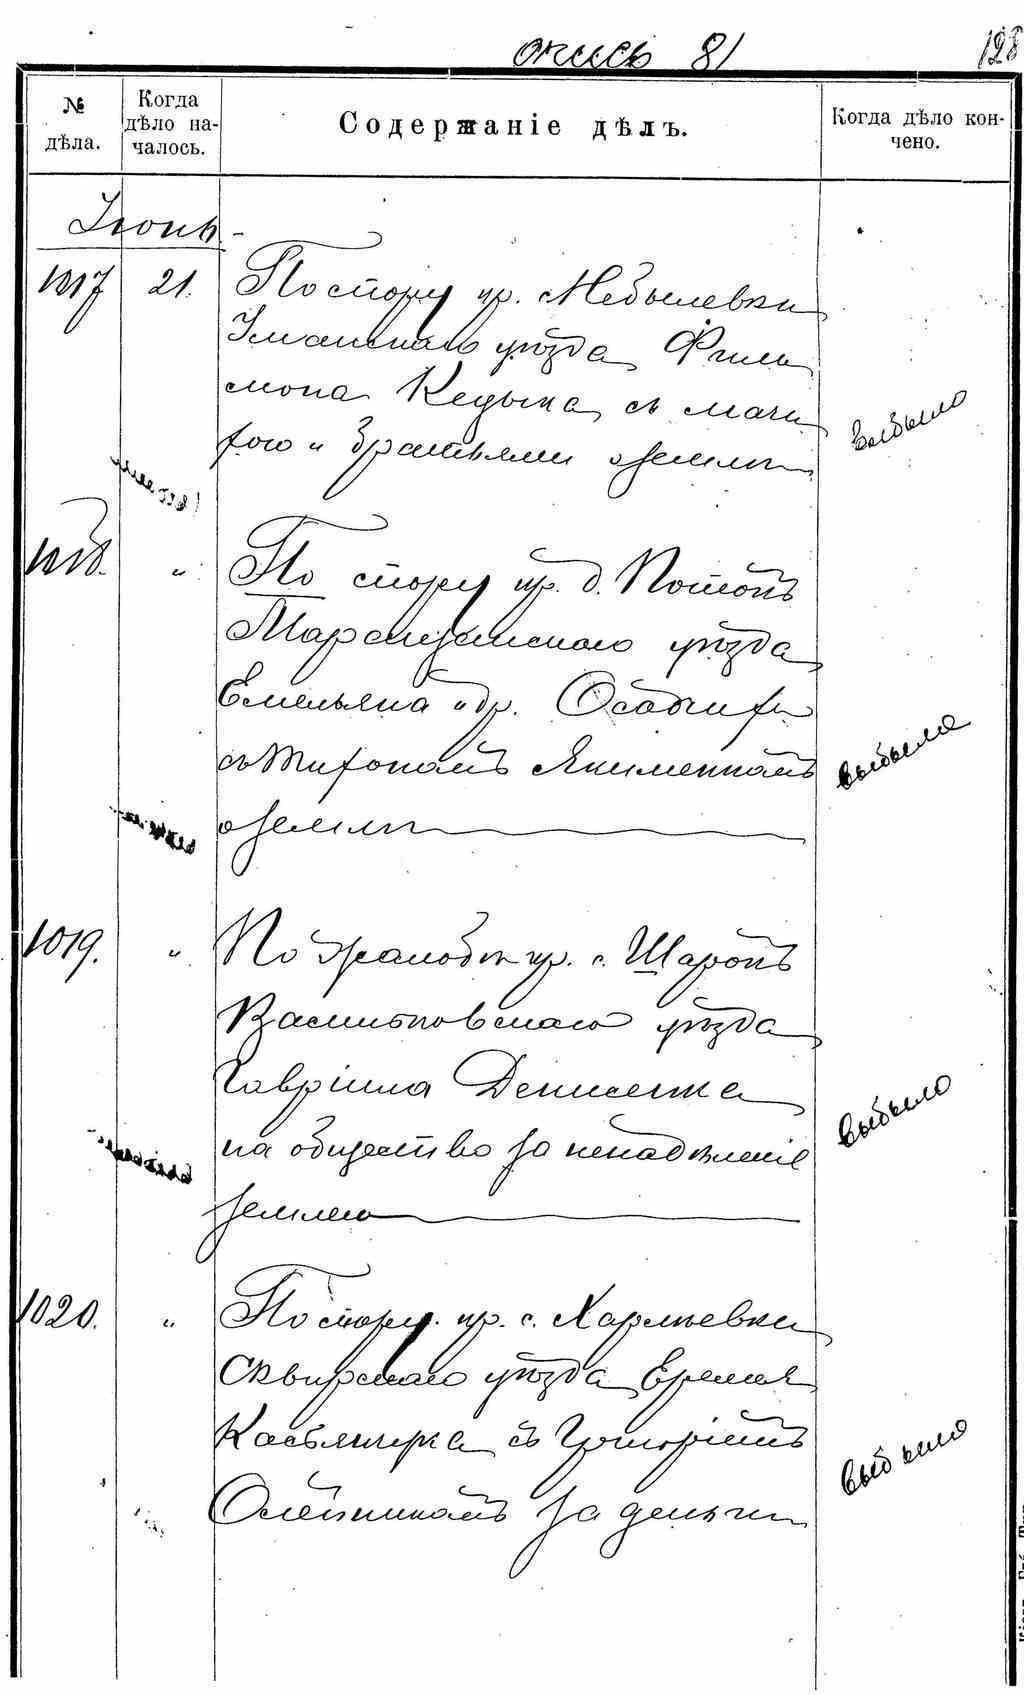 опись 81
128
№ дѣла.
Когда дѣло на-
чалось.
Содержаніе дѣлъ.
Когда дѣло кон-
чено.
Іюнь
1017 21. По спору кр. Небылевки
Уманскаго уѣзда Фили
мона Кедыка съ маче
хою и братьями о землѣ
выбыло
1018. " По спору кр. д. Потокъ
Таращанскаго уѣзда
Емельяна и др.
съ Тихономъ Якименкомъ
о землѣ
выбыло
1019. " По жалобѣ кр. с. Шарокъ
Васильковскаго уѣзда
Гавріила Денисенка
на общество за ненадѣленіе
землею
выбыло
1020. " По спору кр. с. Харлѣевки
Сквирскаго уѣзда Еремія
Касьянчука съ Григоріемъ
Олейникомъ за деньги
выбыло